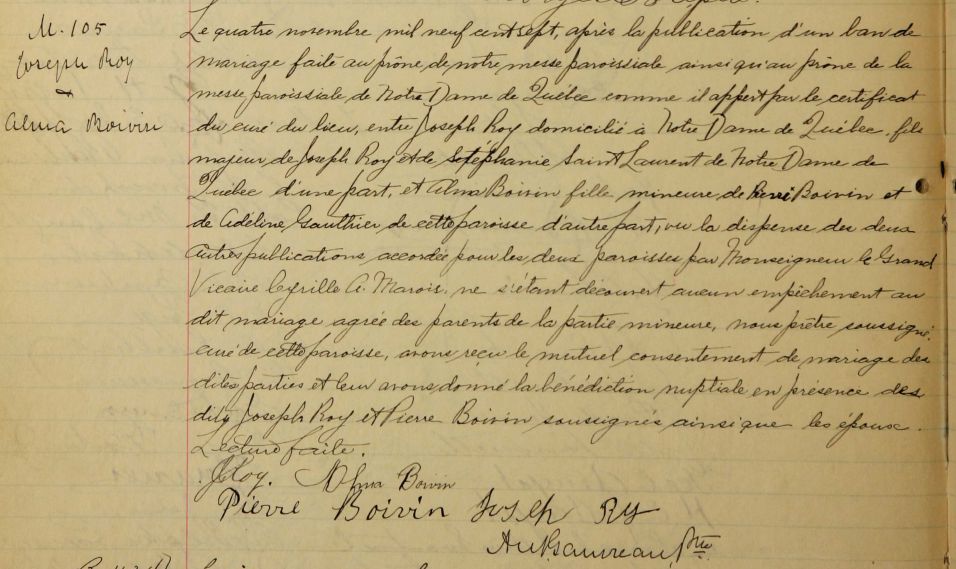 M. 105
Joseph Roy
&
Alma Boivin
Le quatre novembre mil neuf cent sept, après la publication d'un ban de
mariage faite au prône de notre messe paroissiale ainsi qu'au prône de la
messe paroissiale de Notre Dame de Québec comme il appert par le certificat
du curé du lieu, entre Joseph Roy domicilié à Notre Dame de Québec, fils
majeur de Joseph Roy et de Stéphanie Saint Laurent de Notre Dame de
Québec d'une part, et Alma Boivin fille mineure de Pierre Boivin et
de Adéline Gauthier de cette paroisse d'autre part, vu la dispense des deux
autres publications accordée pour les deux paroisses par Monseigneur le Grand
Vicaire Cyrille A. Marois, ne s'étant découvert aucun empêchement au
dit mariage agrée des parents de la partie mineure, nous prêtre soussigné,
curé de cette paroisse, avons reçu le mutuel consentement de mariage des
dites parties et leur avons donné la bénédiction nuptiale en présence des
dits Joseph Roy et Pierre Boivin soussignés ainsi que les époux.
Lecture faite.
J. Roy. Alma Boivin
Pierre Boivin Joseph Ry
Ptre